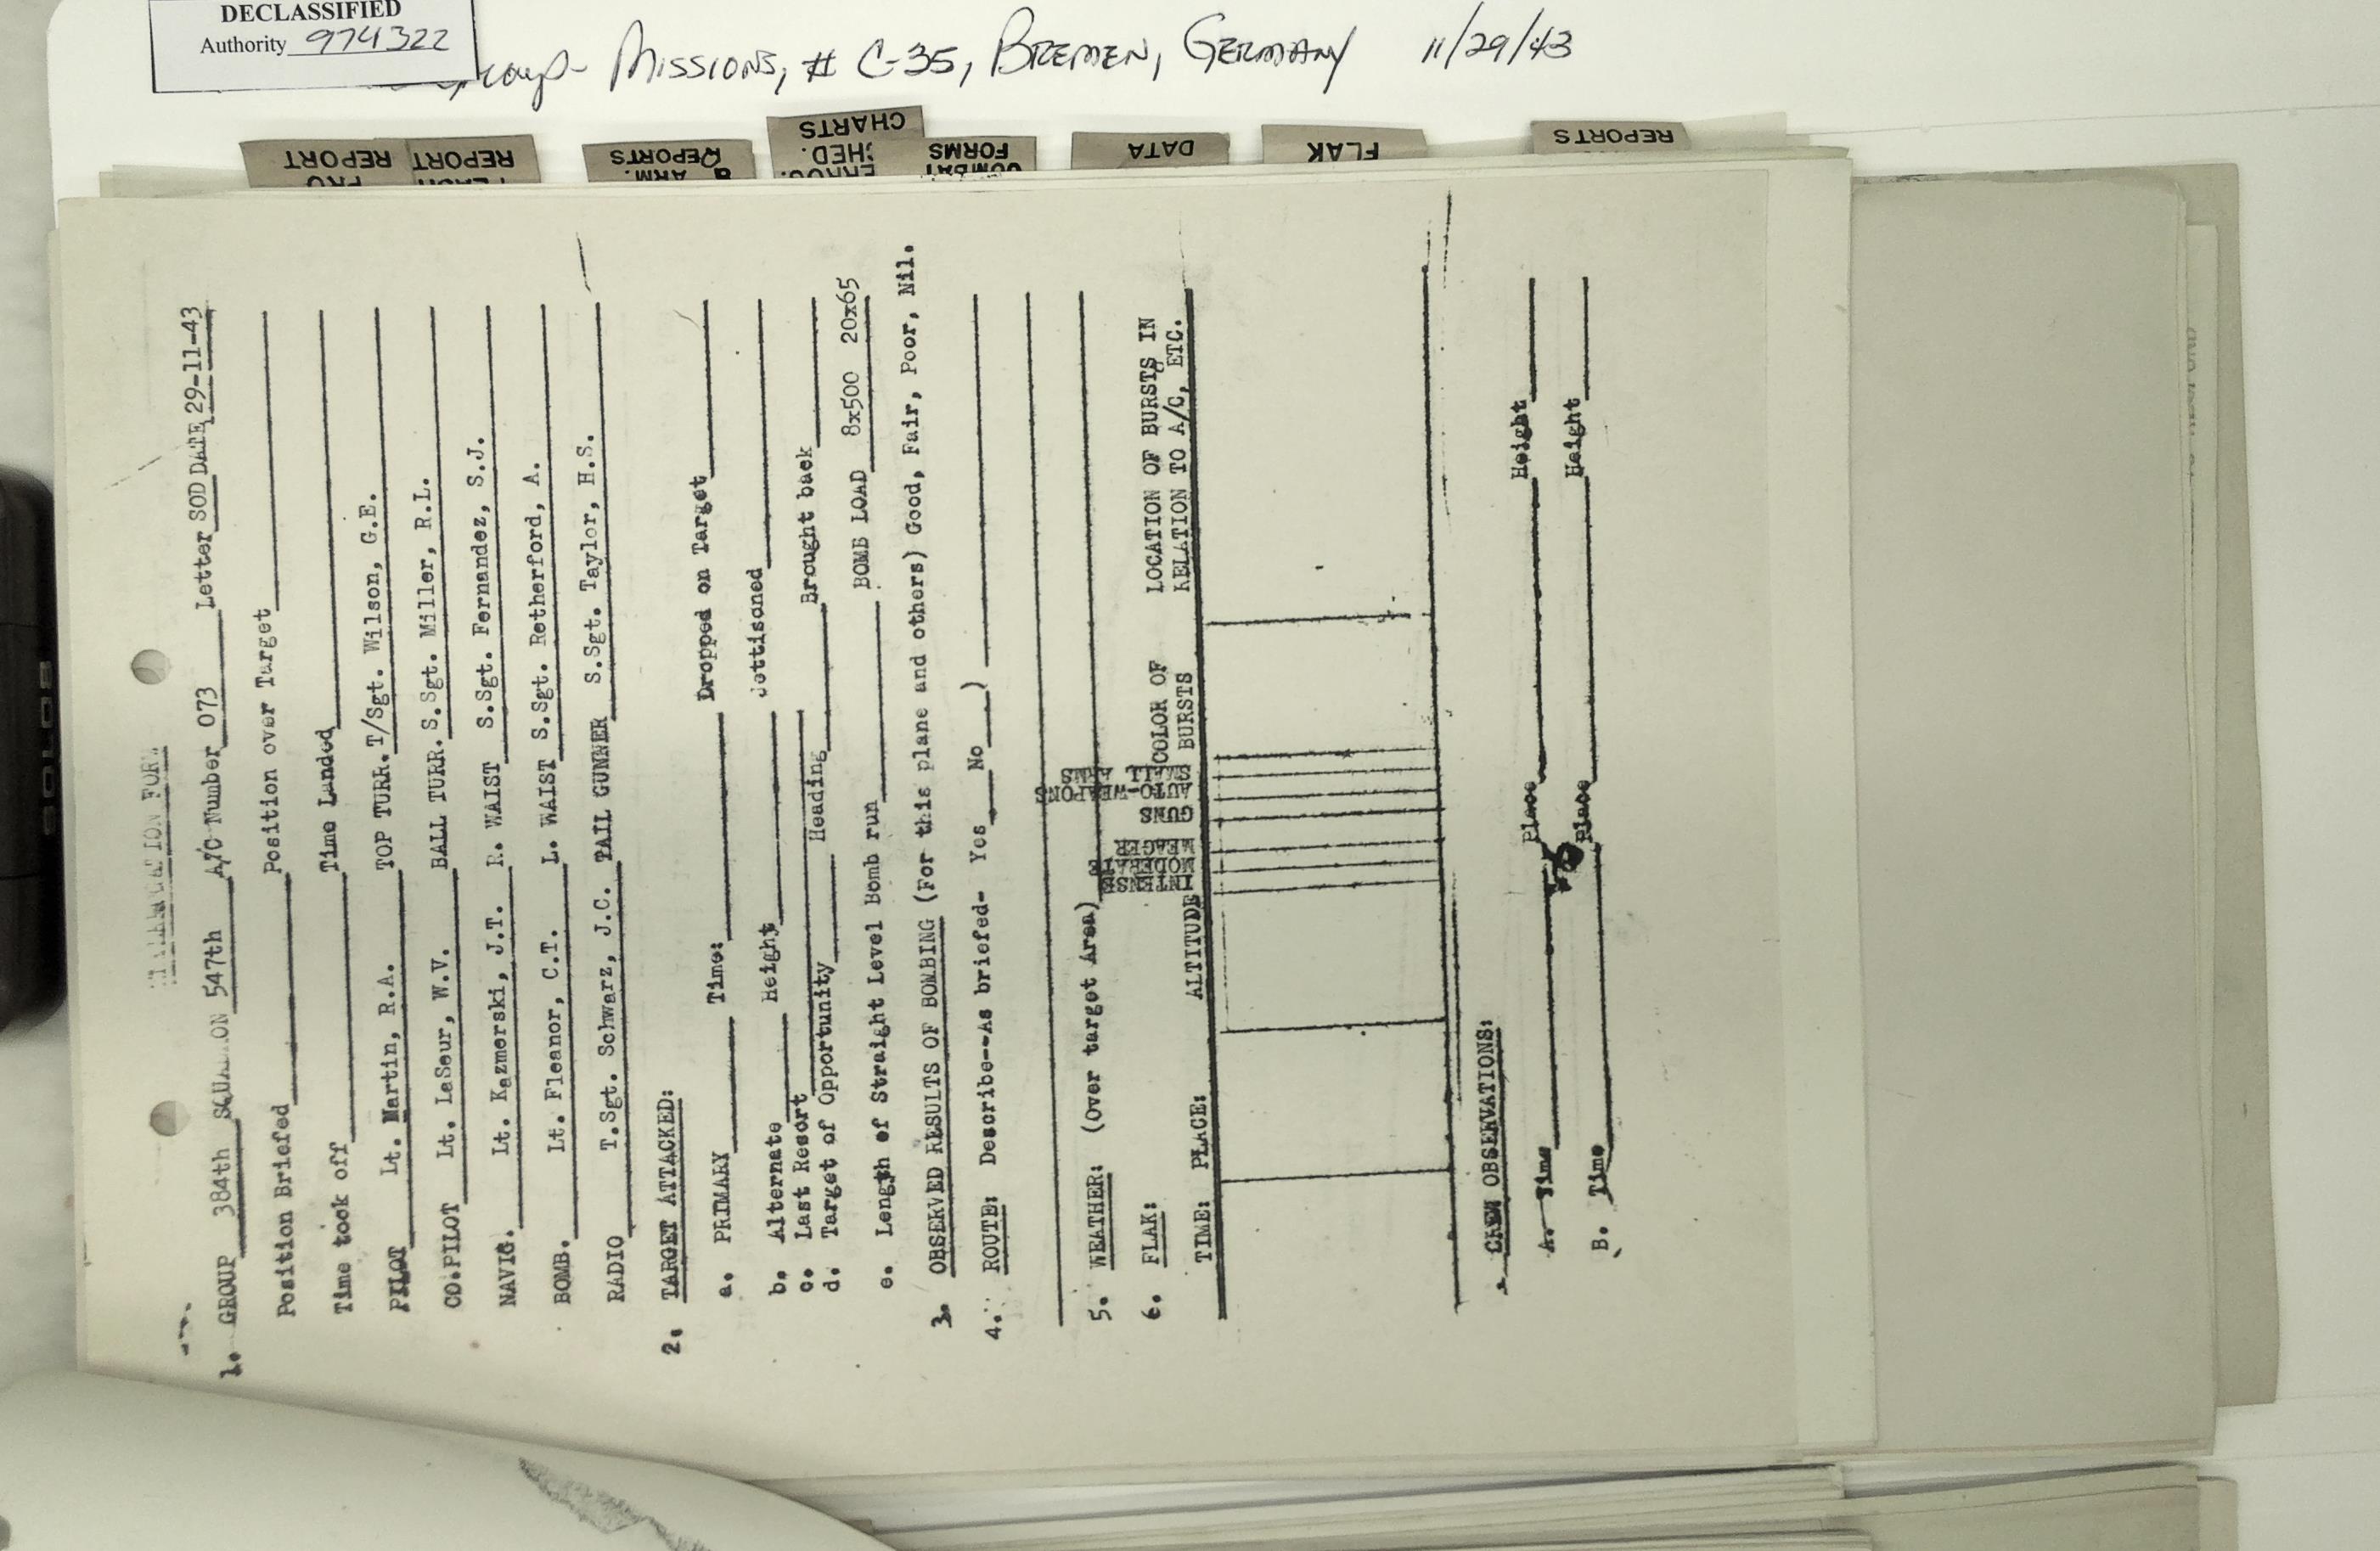 DECLASSIFIED
Authority 974322
Group- Missions, # C-35, Bremen, Germany 11/29/43
REPORT
REPORT
ARM.
REPORTS
CHARTS
FORMS
DATA
FLAK
REPORTS
1. GROUP 384th SQUADRON 547th A/C Number 073 Letter SOD DATE 29-11-43
Position Briefed Position over Target
Time took off Time Landed
PILOT Lt. Martin, R.A. TOP TURR. T/Sgt. Wilson, G.E.
CO.PILOT Lt. LaSeur, W.V. BALL TURR. S.Sgt. Miller, R.L.
NAVIG. Lt. Kazmerski, J.T. R. WAIST S.Sgt. Fernandez, S.J.
BOMB. Lt. Fleanor, C.T. L. WAIST S.Sgt. Retherford, A.
RADIO T.Sgt. Schwarz, J.C. TAIL GUNNER S.Sgt. Taylor, H.S.
2. TARGET ATTACKED:
a. PRIMARY Time: Dropped on Target
b. Alternate Height Jettisoned
c. Last Resort
d. Target of Opportunity Heading Brought back
e. Length of Straight Level Bomb run BOMB LOAD 8x500 20x65
3. OBSERVED RESULTS OF BOMBING (For this plane and others) Good, Fair, Poor, Nil.
4. ROUTE: Describe--As briefed- Yes No )
5. WEATHER: (Over target Area)
6. FLAK:
TIME: PLACE: ALTITUDE INTENSE MODERATE MEAGER GUNS AUTO-WEAPONS SMALL ARMS COLOR OF BURSTS LOCATION OF BURSTS IN RELATION TO A/C, ETC.
CREW OBSERVATIONS:
A. Time Place Height
B. Time Place Height